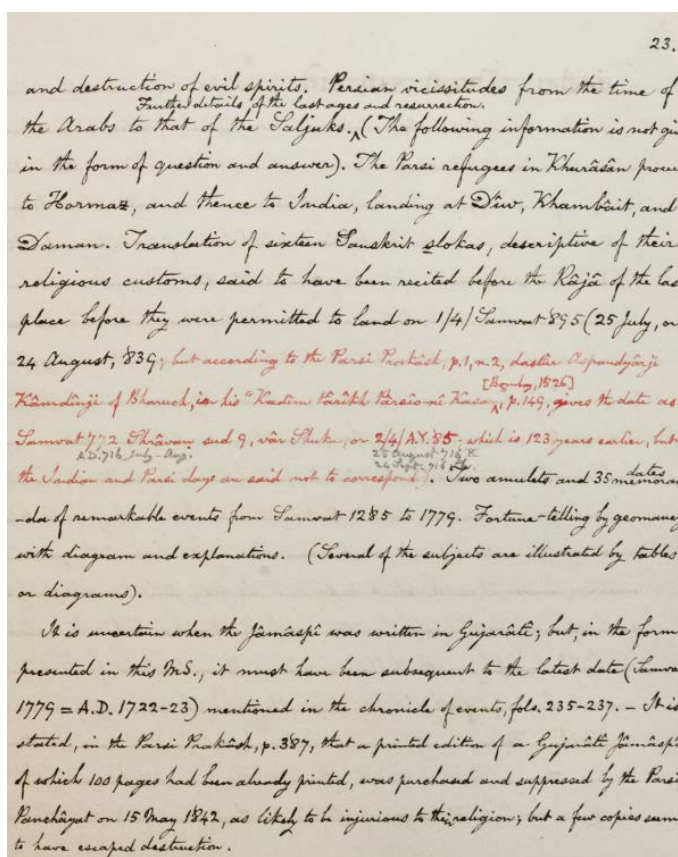 23.
and destruction of evil spirits. Persian vicissitudes from the time of
Further details, of the last ages and resurrection.
the Arabs to that of the Saljuks. ^ (The following information is not gi
in the form of question and answer). The Parsi refugees in Khurâsân proce
to Hormaz, and thence to India, landing at Dîw, Khambâit, and
Daman. Translation of sixteen Sanskrit slokas, descriptive of their
religious customs, said to have been recited before the Râjâ of the las
place before they were permitted to land on 1/4/Samwat 895 (25 July, or
24 August, 839; but according to the Parsi Prakâsh, p.1, n.2, dastûr Aspandyârji
[Bombay, 1826]
Kâmdînji of Bharuch, in his "Kadîm târîkh Parsîo-nî Kasar ^, p.149, gives the date as
Samwat 772 Shrâvan sud 9, vâr Shukar, or 2/4/A.Y. 85- which is 123 years earlier, but
A.D. 716 July - Aug. 25 August 716 K
24 Sept. 716
the Indian and Parsi days are said not to correspond). Two amulets and 35 dates memoran
-da of remarkable events from Samwat 1285 to 1779. Fortune-telling by geomancy
with diagram and explanations. (Several of the subjects are illustrated by tables
or diagrams).
It is uncertain when the Jâmâspî was written in Gujarâtî; but, in the form
presented in this MS., it must have been subsequent to the latest date (Samwa
1779 = A.D. 1722-23) mentioned in the chronicle of events, fols. 235-237. - It is
stated, in the Parsi Prakâsh, p.387, that a printed edition of a Gujarâtî Jâmâspî
of which 100 pages had been already printed, was purchased and suppressed by the Parsi
Panchâyat on 15 May 1842, as likely to be injurious to their religion; but a few copies seem
to have escaped destruction.